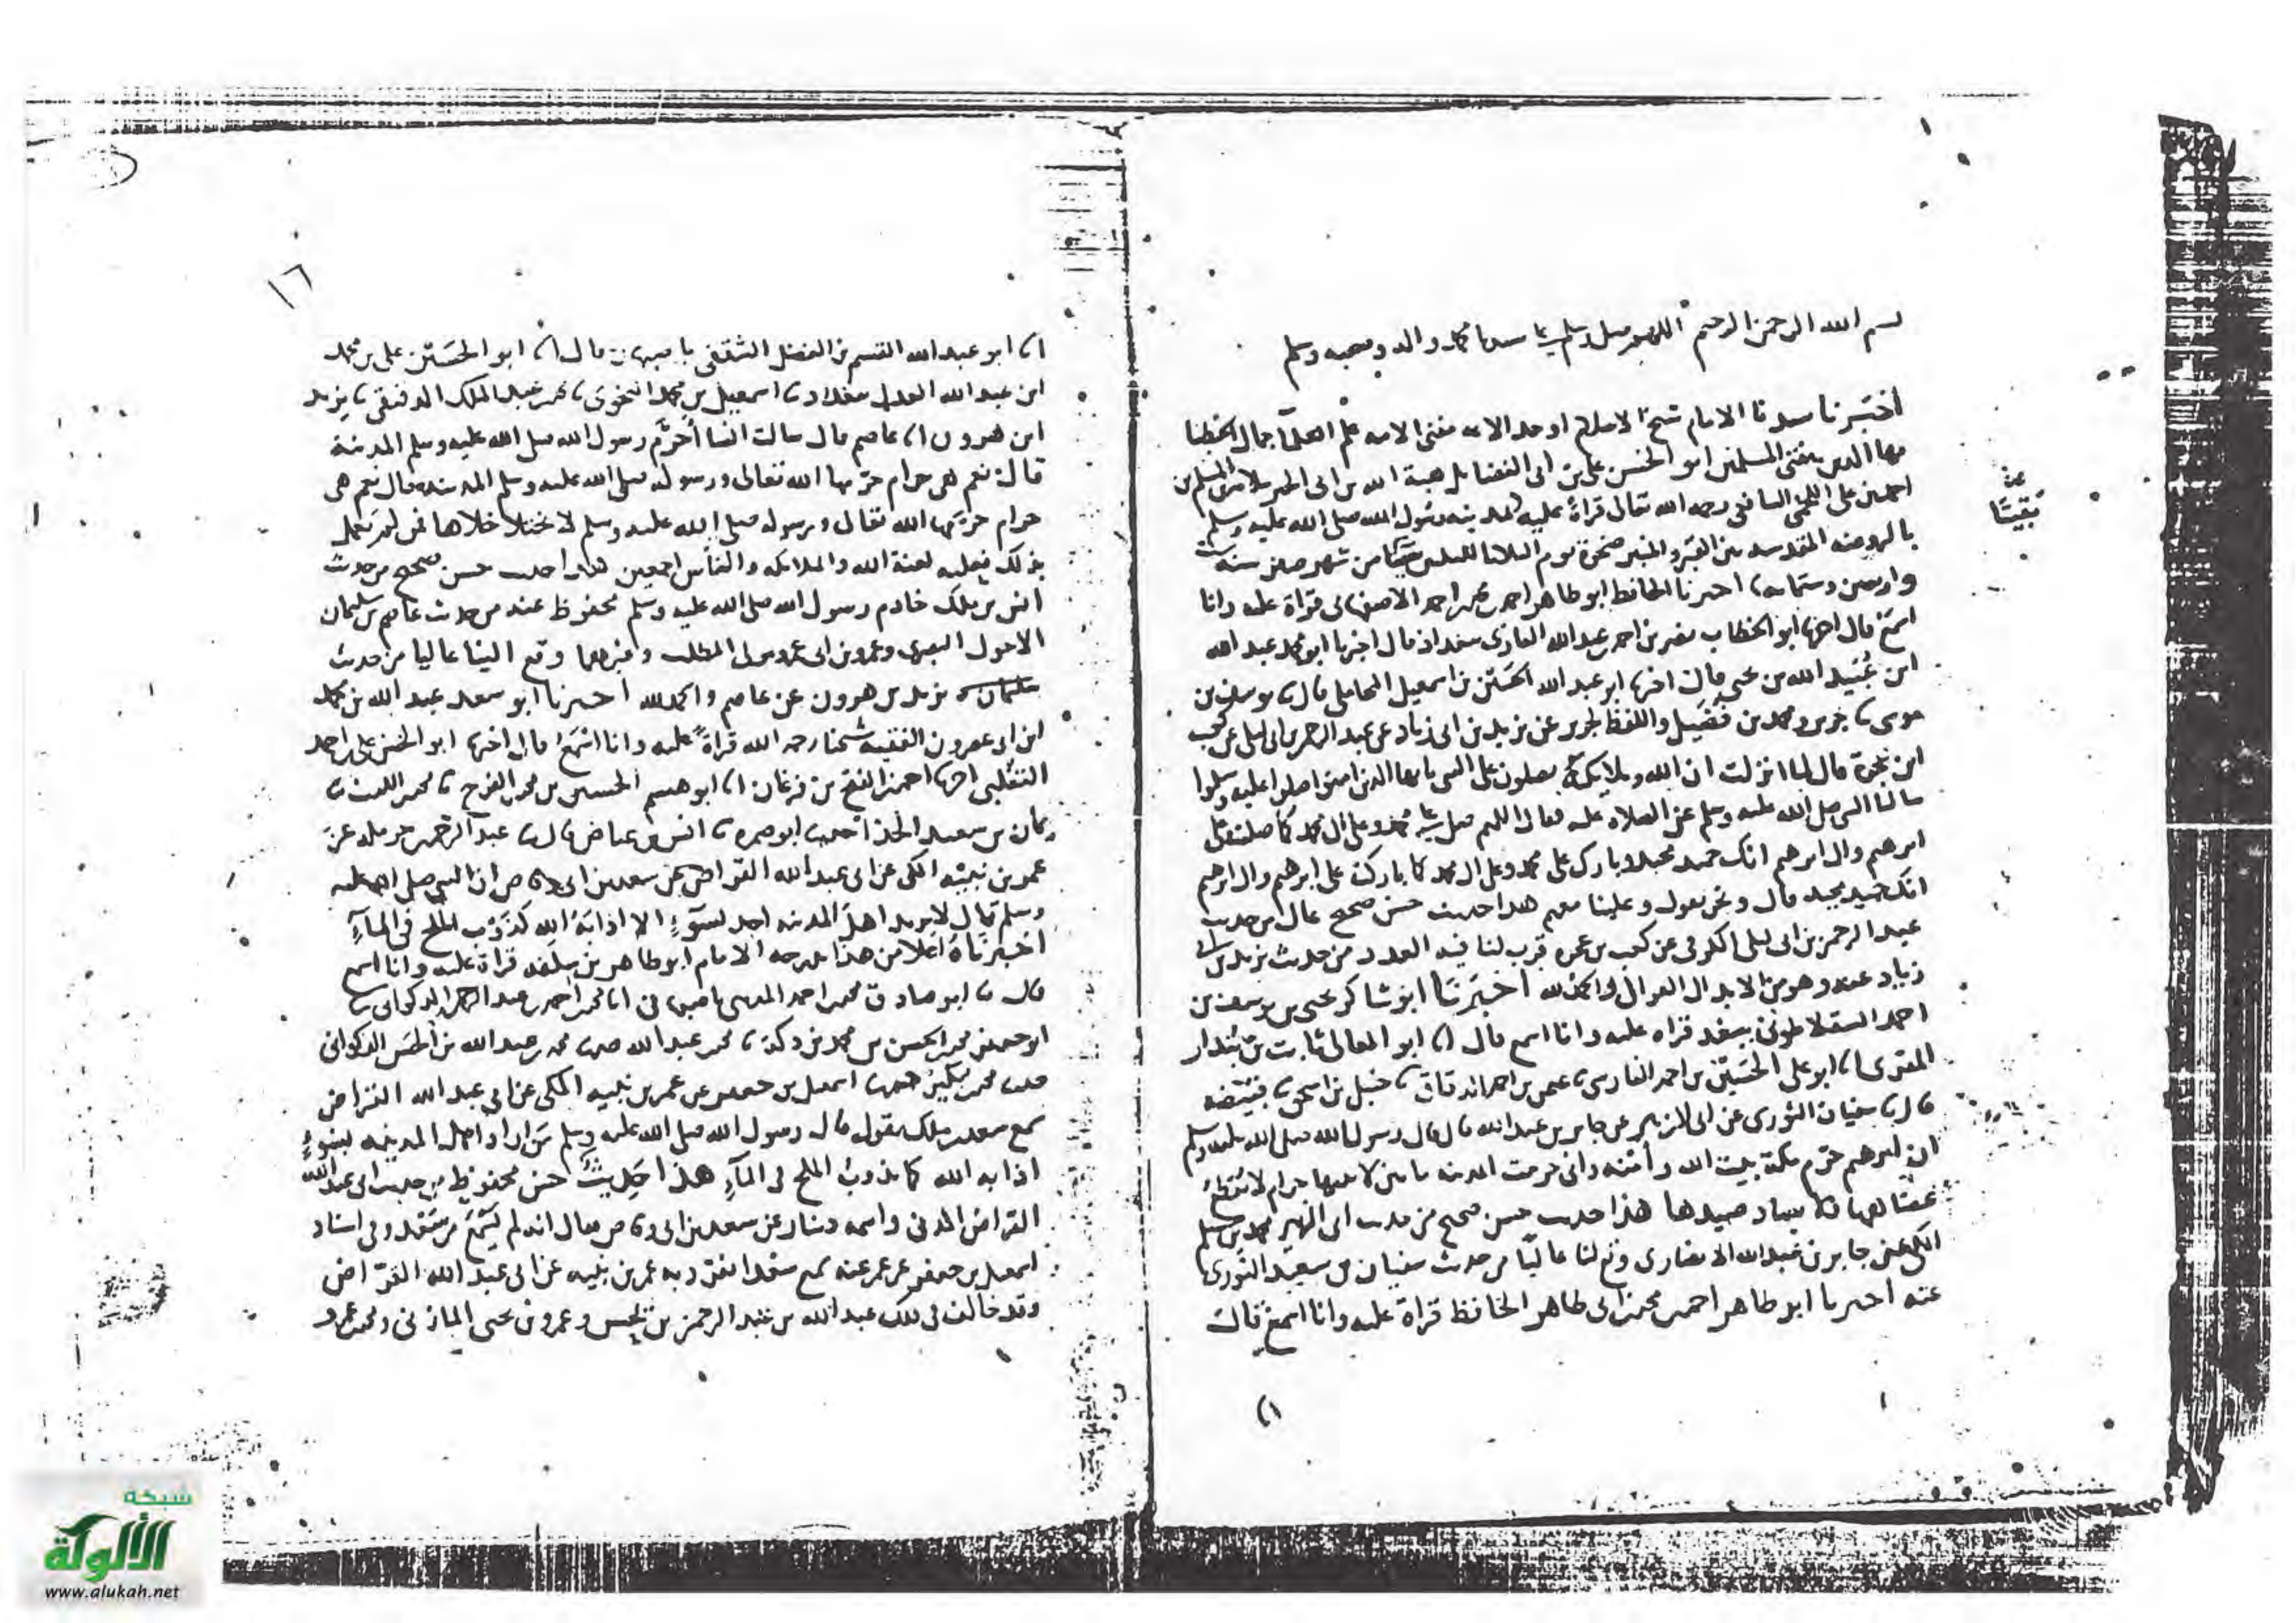 بسم الله الرحمن الرحيم اللهم صل وسلم على سيدنا محمد واله وصحبه وسلم
أخبرنا سيدنا الامام شيخ الاسلام اوحد الانام مفتى الامه علم العلما جمال الخطبا
بها الدين مفتى المسلمين ابو الحسن على بن ابى الفضايل هبة الله بن ابى الخير سلامة بن المسلم بن
احمد بن على اللخمى الشافعى رحمه الله تعالى قراة عليه بمدينه رسول الله صلى الله عليه وسلم
بالروضه المقدسه بين القبر والمنبر ضحوة يوم الثلاثا لليلتين بقيتا من شهر صفر سنه ست
واربعين وستمايه اخبرنا الحافظ ابو طاهر احمد بن محمد بن احمد الاصفهانى قراة عليه وانا
اسمع قال اخبرنا ابو الخطاب نصر بن احمد بن عبد الله القارى ببغداد قال اخبرنا ابو محمد عبد الله
ابن عبيد الله بن يحيى قال اخبرنا ابو عبد الله الحسين بن اسمعيل المحاملى قال نا يوسف بن
موسى نا جرير ومحمد بن فضيل واللفظ لجرير عن يزيد بن ابى زياد عن عبد الرحمن بن ابى ليلى عن كعب
ابن عجرة قال لما نزلت ان الله وملايكته يصلون على النبى يا ايها الذين امنوا صلوا عليه وسلموا
سالنا النبى صلى الله عليه وسلم عن الصلاه عليه فقال اللهم صل على محمد وعلى ال محمد كما صليت على
ابرهيم وال ابرهيم انك حميد مجيد وبارك على محمد وعلى ال محمد كما باركت على ابرهيم وال ابرهيم
انك حميد مجيد قال ونحن نقول وعلينا معهم هذا حديث حسن صحيح عال من حديث
عبد الرحمن بن ابى ليلى الكوفى عن كعب بن عجره قرب لنا فيه العدد من حديث يزيد بن ابى
زياد عنه وهو من الابدال العوال والحمد لله أخبرنا ابو شاكر يحيى بن يوسف بن
احمد السقلاطونى ببغداد قراه عليه وانا اسمع قال انا ابو المعالى ثابت بن بندار
المقرى انا ابو على الحسين بن احمد الفارسى نا عيسى بن احمد الدقاق نا حنبل بن اسحق نا قبيصه
قال نا سفيان الثورى عن ابى الزبير عن جابر بن عبد الله قال قال رسول الله صلى الله عليه وسلم
ان ابرهيم حرم مكة بيت الله وأمنه وانى حرمت المدينه ما بين لابتيها حرام لا يقطع
عضاهها ولا يصاد صيدها هذا حديث حسن صحيح من حديث ابى الزبير محمد بن مسلم
المكى عن جابر بن عبد الله الانصارى وقع لنا عاليا من حديث سفيان بن سعيد الثورى
عنه اخبرنا ابو طاهر احمد بن محمد بن ابى طاهر الحافظ قراة عليه وانا اسمع قال
بقيتا
١٦
انا ابو عبد الله القسم بن الفضل الثقفى باصبهان قال انا ابو الحسين على بن محمد
ابن عبد الله العدل ببغداد نا اسمعيل بن محمد النحوى نا محمد بن عبد الملك الدقيقى نا يزيد
ابن هرون انا عاصم قال سالت انسا أحرم رسول الله صلى الله عليه وسلم المدينة
قال نعم هى حرام حرمها الله تعالى ورسوله صلى الله عليه وسلم المدينه قال نعم هى
حرام حرمها الله تعالى ورسوله صلى الله عليه وسلم لا يختلا خلاها فمن لم يعمل
بذلك فعليه لعنة الله والملايكه والناس اجمعين هذا حديث حسن صحيح من حديث
انس بن ملك خادم رسول الله صلى الله عليه وسلم محفوظ عنه من حديث عاصم بن سليمان
الاحول البصرى وعمرو بن ابى عمرو مولى المطلب وغيرهما وقع الينا عاليا من حديث
يزيد بن هرون عن عاصم والحمد لله أخبرنا ابو سعد عبد الله بن محمد
ابن ابى عصرون الفقيه شيخنا رحمه الله قراة عليه وانا اسمع قال اخبرنا ابو الحسن على بن احمد
احمد بن الفتح بن فرغان انا ابو هيثم الحسين بن محمد بن الفرج نا محمد بن الليث نا
بن سعيد نا ابو ضمره نا انس بن عياض قال نا عبد الرحمن بن حرمله عن
عمر بن نبيه الكعبى عن ابى عبد الله القراظ عن سعد بن ابى وقاص ان النبى صلى الله عليه
وسلم قال لا يريد اهل المدينه احد بسوء الا اذابه الله كذوب الملح فى الماء
أخبرناه اعلا من هذا بدرجه الامام ابو طاهر بن سلفه قراة عليه وانا اسمع
قال نا ابو صادق محمد بن احمد المدينى باصبهان انا محمد بن احمد بن عبد الرحمن الذكوانى نا
ابو جعفر محمد بن الحسن بن محمد بن دكة نا محمد بن عبد الله حدثنا محمد بن عبد الله بن الحسن الذكوانى
حدثنا محمد بن بكير حدثنا اسمعيل بن جعفر عن عمر بن نبيه الكعبى عن ابى عبد الله القراظ
سمع سعد بن ملك يقول قال رسول الله صلى الله عليه وسلم من اراد اهل المدينه بسوء
اذابه الله كما يذوب الملح فى الماء هذا حديث حسن محفوظ من حديث ابى عبد الله
القراظ المدنى واسمه دينار عن سعد بن ابى وقاص يقال انه لم يسمع من سعد وفى اسناد
اسمعيل بن جعفر عن عمر عنه سمع سعدا تفرد به عمر بن نبيه عن ابى عبد الله القراظ
وقد خالف فى ذلك عبد الله بن عبد الرحمن بن يحنس وعمرو بن يحيى المازنى ومحمد بن عمرو
شبكة
الألوكة
www.alukah.net